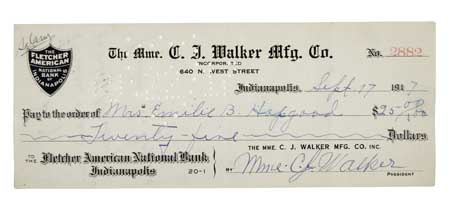 THE
FLETCHER
AMERICAN
NATIONAL
BANK
OF
INDIANAPOLIS
The Mme. C. J. Walker Mfg. Co.
No. 2882
INCORPORATED
640 N. WEST STREET
Indianapolis, Sept 17 1917
Pay to the order of Mrs Emilie B. Hapgood $25.00
Twenty-five Dollars
TO THE Fletcher American National Bank
Indianapolis 20-1
THE MME. C. J. WALKER MFG. CO. INC.
BY Mme. C. J. Walker
PRESIDENT